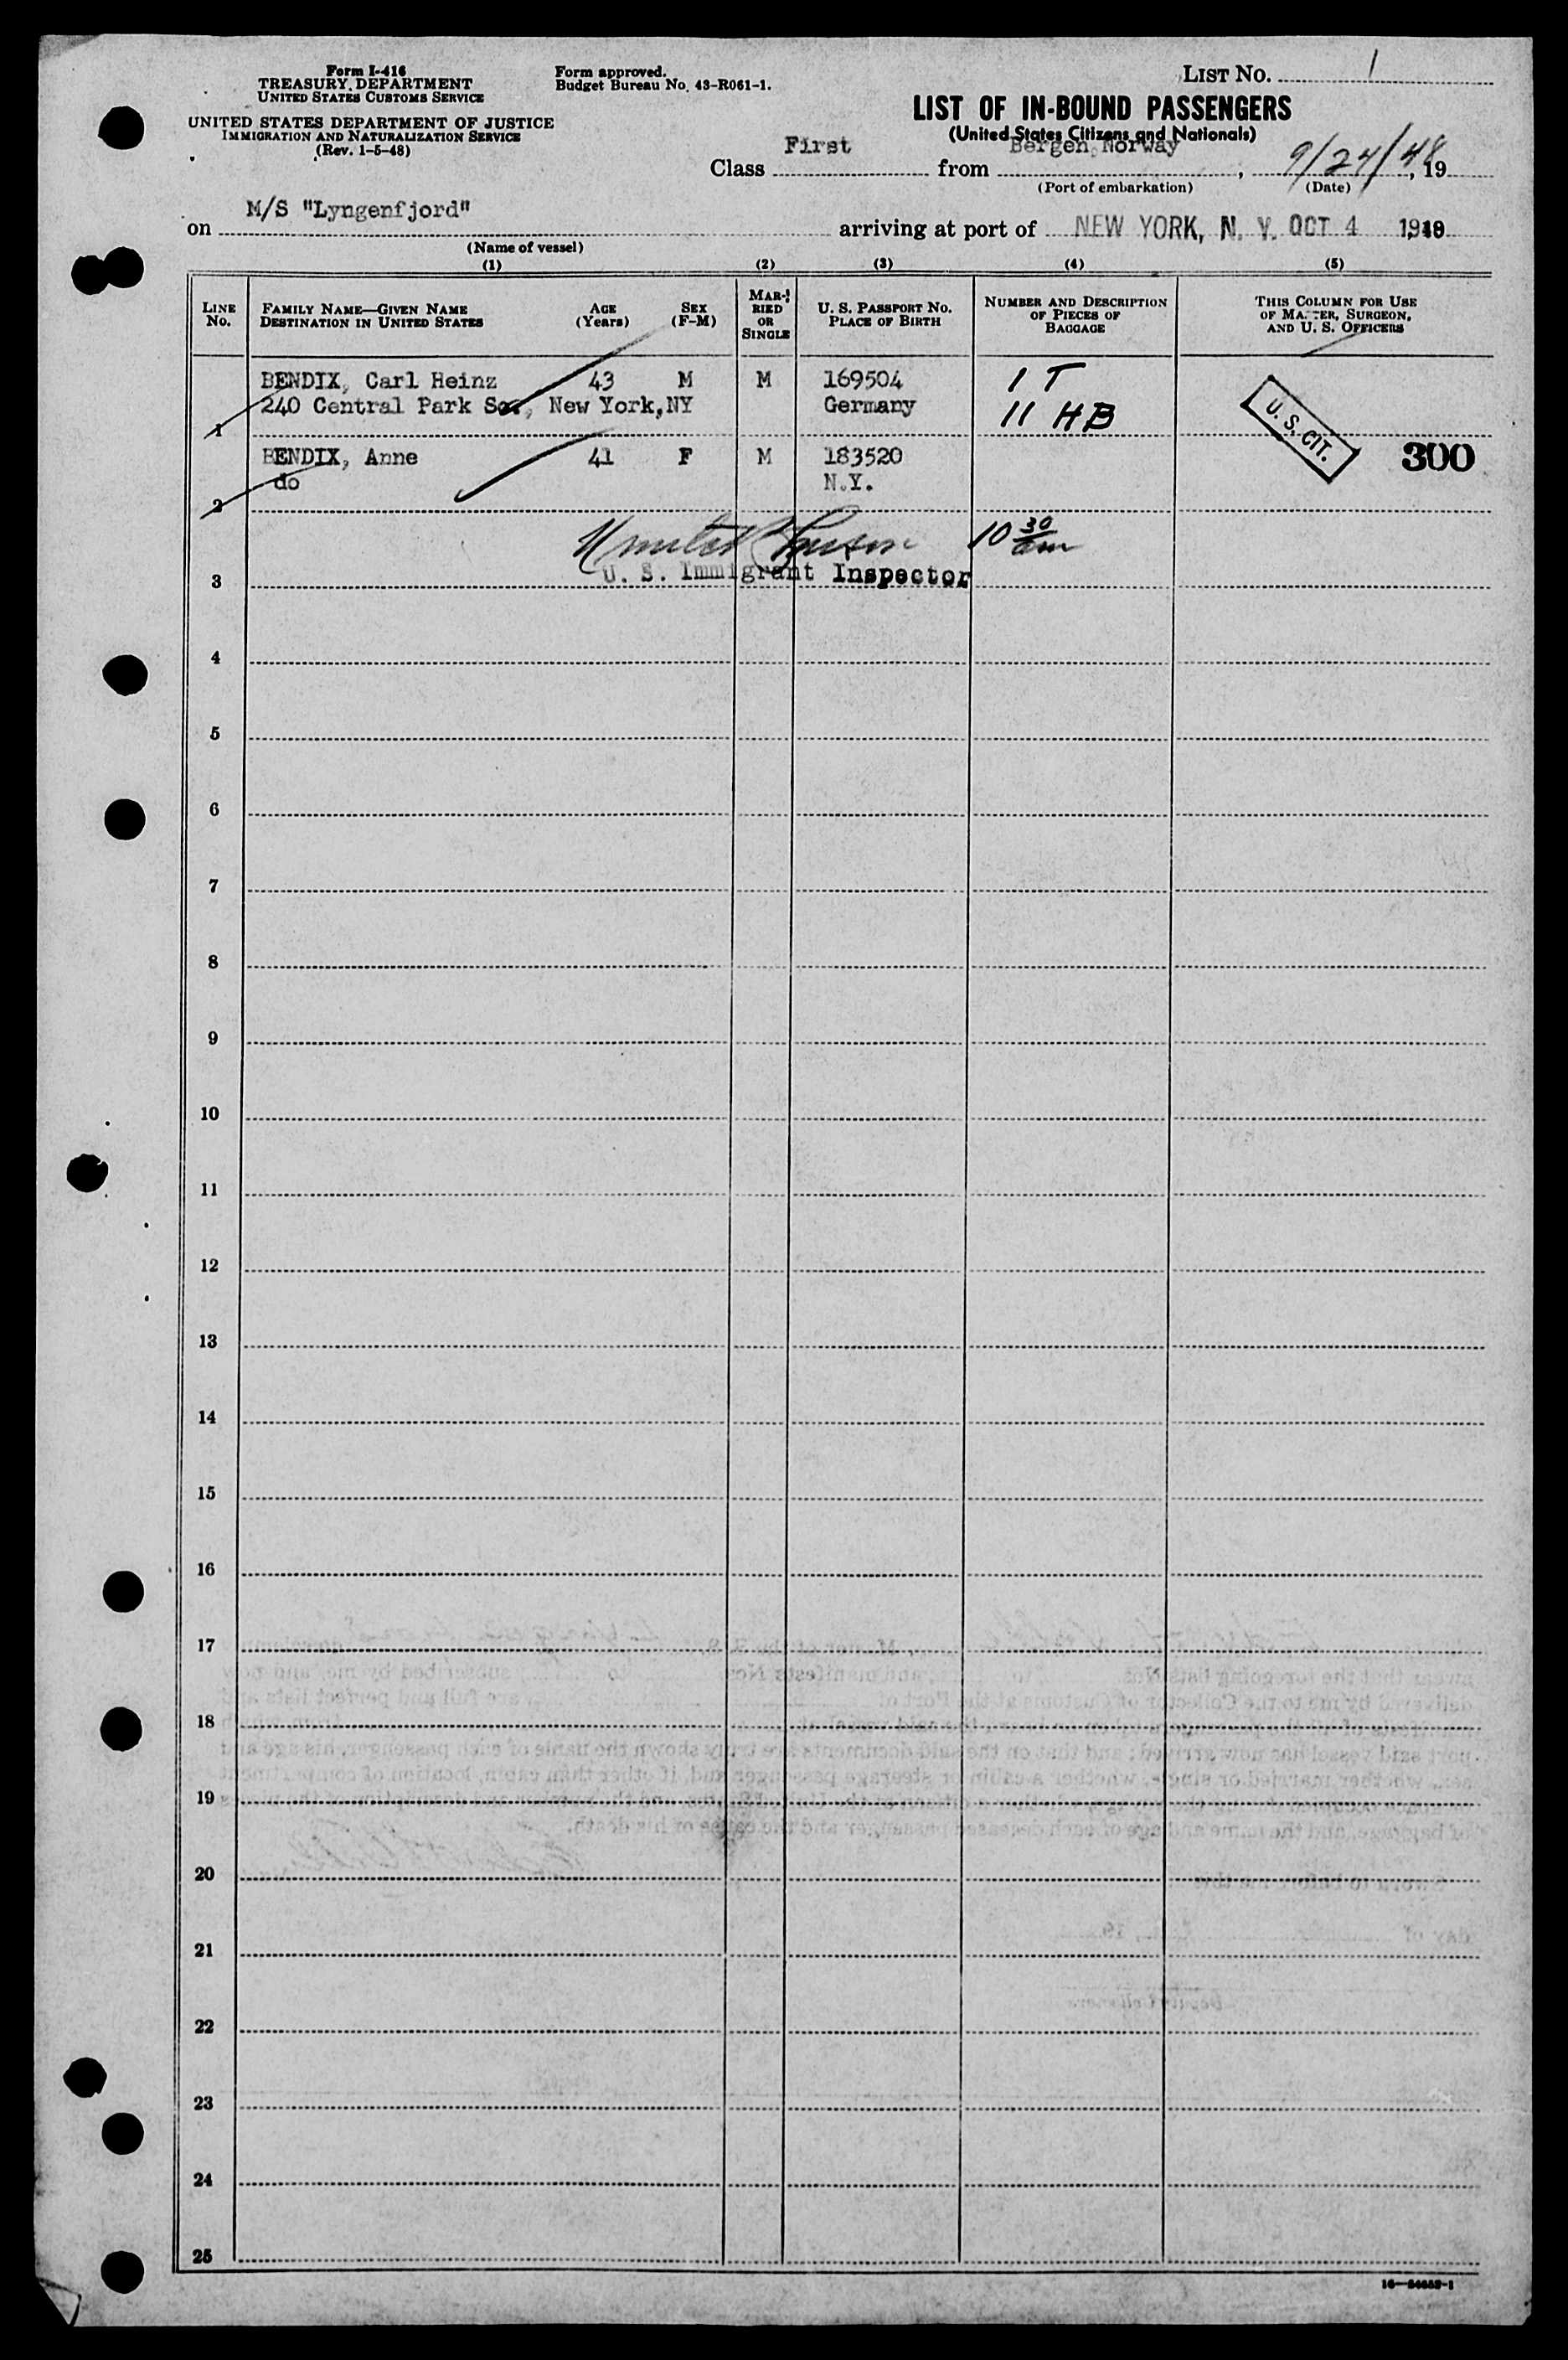 Form I-416
TREASURY DEPARTMENT
UNITED STATES CUSTOMS SERVICE
UNITED STATES DEPARTMENT OF JUSTICE
IMMIGRATION AND NATURALIZATION SERVICE
(Rev. 1-5-48)
Form approved.
Budget Bureau No. 43-R061-1.
LIST NO. 1
LIST OF IN-BOUND PASSENGERS
(United States Citizens and Nationals)
Class First from Bergen, Norway, 9/24/48, 19
(Port of embarkation) (Date)
on M/S "Lyngenfjord" arriving at port of NEW YORK, N. Y. OCT 4 1948
(Name of vessel)
(1) (2) (3) (4) (5)
LINE NO.
FAMILY NAME—GIVEN NAME
DESTINATION IN UNITED STATES
AGE (Years)
SEX (F-M)
MARRIED OR SINGLE
U. S. PASSPORT NO.
PLACE OF BIRTH
NUMBER AND DESCRIPTION OF PIECES OF BAGGAGE
THIS COLUMN FOR USE OF MASTER, SURGEON, AND U. S. OFFICERS
BENDIX, Carl Heinz 43 M M 169504 1 T
1 240 Central Park So., New York, NY Germany 11 HB
U. S. CIT.
300
BENDIX, Anne 41 F M 183520
2 do N.Y.
10 30 am
3 U. S. Immigrant Inspector
4
5
6
7
8
9
10
11
12
13
14
15
16
17
18
19
20
21
22
23
24
25